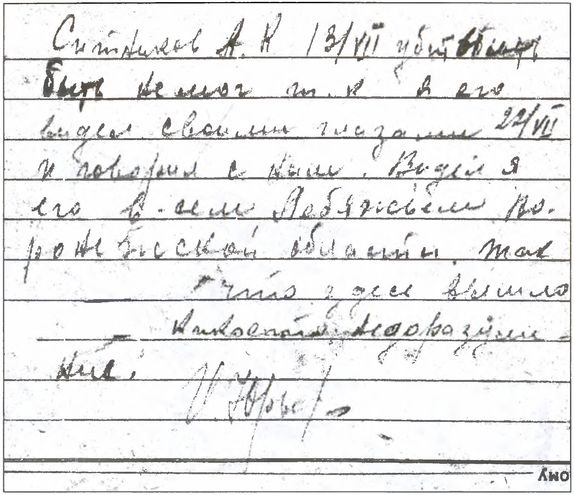 Ситников А. К 13/VII убит
быть не мог т. к я его
видел своими глазами 22/VII
и говорил с ним. Видел я
его в селе Лебяжьем Во-
ронежской области. Так
что здесь вышло
какое-то недоразуме-
ние.
И. Юрьев
ому